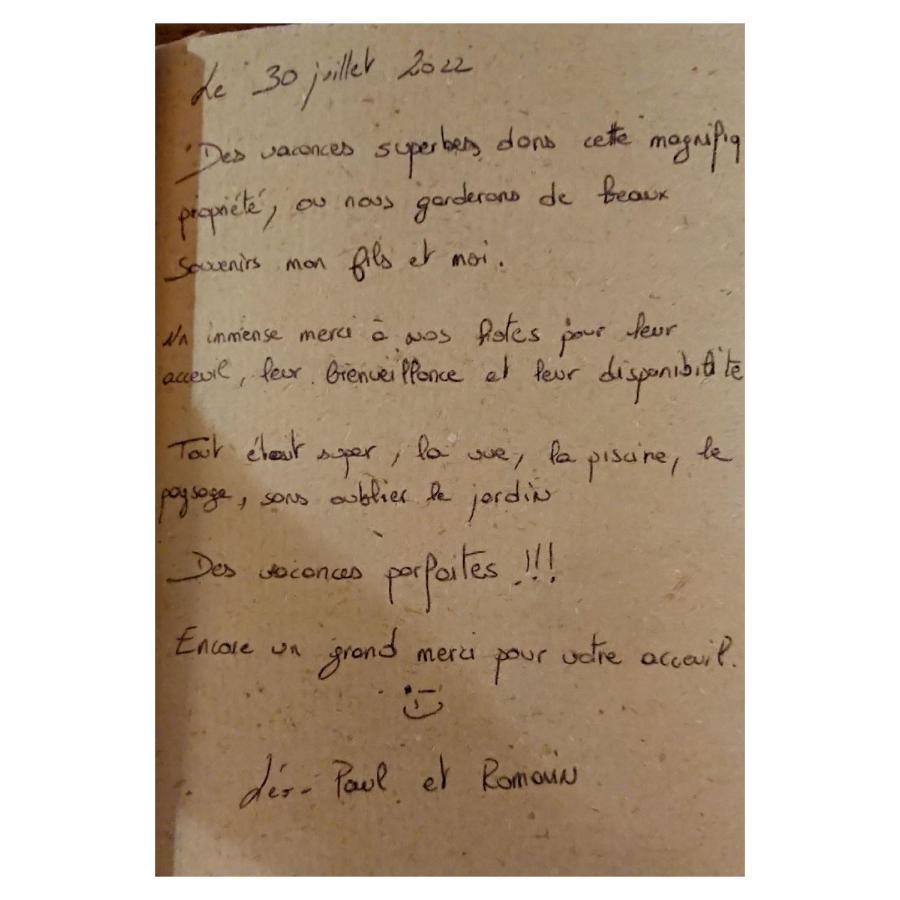 Le 30 juillet 2022
Des vacances superbes dans cette magnifiq
propriété, ou nous garderons de beaux
souvenirs mon fils et moi.
Un immense merci à nos hotes pour leur
acceuil, leur bienveillance et leur disponibilite
Tout était super, la vue, la piscine, le
paysage, sans oublier le jardin
Des vacances parfaites !!!
Encore un grand merci pour votre acceuil.
Paul et Romain